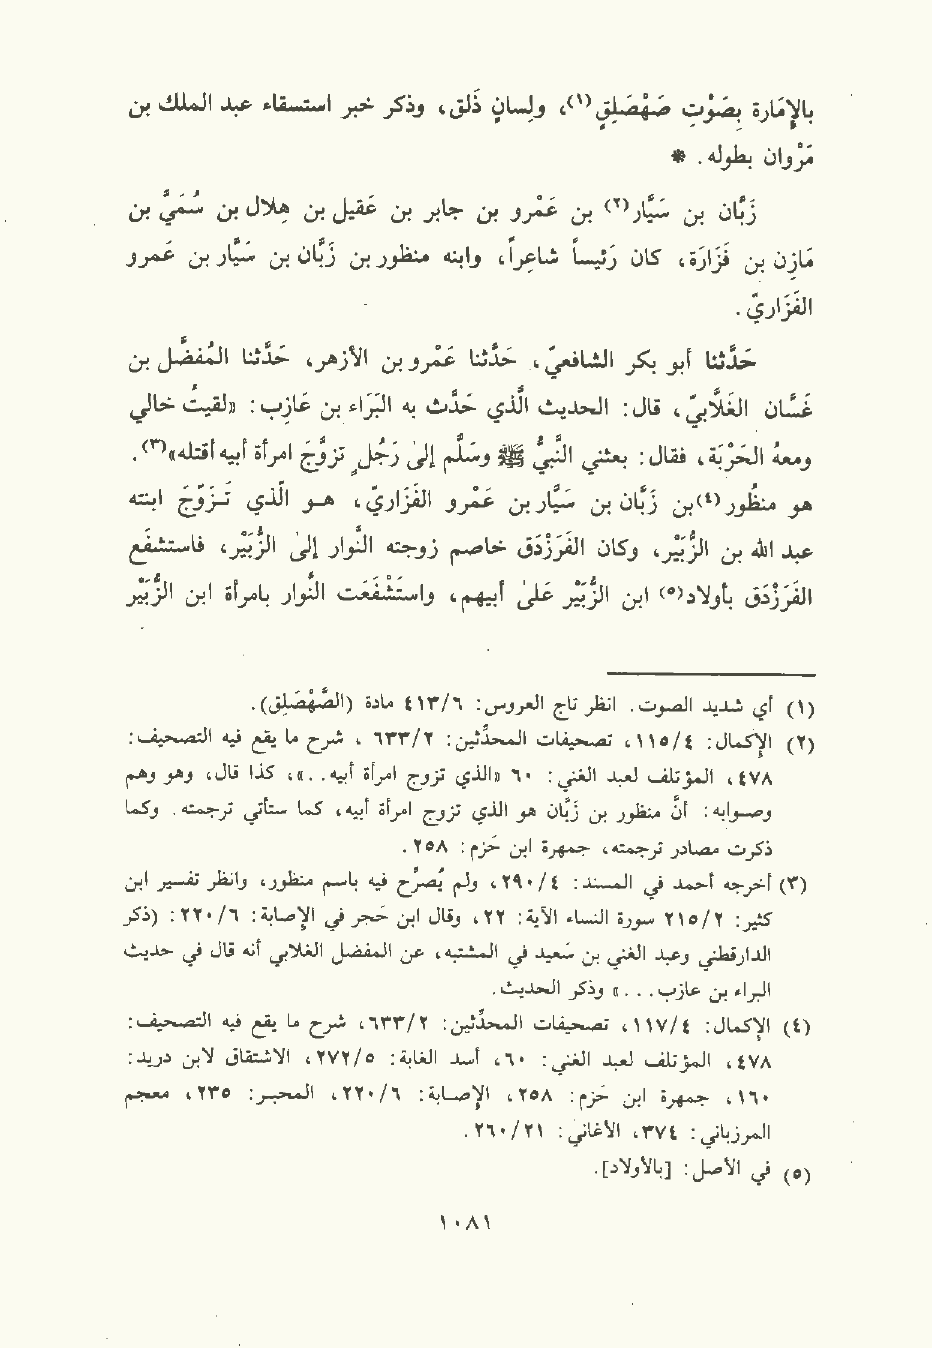 بالإمَارة بِصَوْتٍ صَهْصَلِقٍ(١)، ولِسانٍ ذَلق، وذكر خبر استسقاء عبد الملك بن
مَرْوان بطوله. *
زَبَّان بن سَيَّار(٢) بن عَمْرو بن جابر بن عَقيل بن هِلال بن سُمَيّ بن
مَازِن بن فَزَارَة، كان رَئيساً شاعِراً، وابنه منظور بن زَبَّان بن سَيَّار بن عَمرو
الفَزَاريّ.
حَدَّثنا أبو بكر الشافعيّ، حَدَّثنا عَمْرو بن الأزهر، حَدَّثنا المُفضَّل بن
غَسَّان الغَلَّابيّ، قال: الحديث الذي حَدَّث به البَرَاء بن عازِب: «لقيتُ خالي
ومعهُ الحَرْبَة، فقال: بعثني النَّبيُّ ﷺ وسَلَّم إلىٰ رَجُلٍ تزوَّجَ امرأة أبيه أقتله»(٣).
هو منظور(٤) بن زَبَّان بن سَيَّار بن عَمْرو الفَزاريّ، هو الذي تَزوَّجَ ابنته
عبد الله بن الزُّبَيْر، وكان الفَرَزْدَق خاصم زوجته النَّوار إلىٰ الزُّبَيْر، فاستشفع
الفَرَزْدَق بأولاد(٥) ابن الزُّبَيْر علىٰ أبيهم، واستَشْفَعَت النَّوار بامرأة ابن الزُّبَيْر
(١) أي شديد الصوت. انظر تاج العروس: ٤١٣/٦ مادة (الصَّهْصَلِق).
(٢) الإكمال: ١١٥/٤، تصحيفات المحدِّثين: ٦٣٣/٢، شرح ما يقع فيه التصحيف:
٤٧٨، المؤتلف لعبد الغني: ٦٠ «الذي تزوج امرأة أبيه..»، كذا قال، وهو وهم
وصوابه: أنّ منظور بن زبَّان هو الذي تزوج امرأة أبيه، كما ستأتي ترجمته. وكما
ذكرت مصادر ترجمته، جمهرة ابن حزم: ٢٥٨.
(٣) أخرجه أحمد في المسند: ٢٩٠/٤، ولم يُصرِّح فيه باسم منظور، وانظر تفسير ابن
كثير: ٢١٥/٢ سورة النساء الآية: ٢٢، وقال ابن حجر في الإصابة: ٢٢٠/٦: (ذكر
الدارقطني وعبد الغني بن سَعيد في المشتبه، عن المفضل الغلابي أنه قال في حديث
البراء بن عازب...» وذكر الحديث.
(٤) الإكمال: ١١٧/٤، تصحيفات المحدِّثين: ٦٣٣/٢، شرح ما يقع فيه التصحيف:
٤٧٨، المؤتلف لعبد الغني: ٦٠، أسد الغابة: ٢٧٢/٥، الاشتقاق لابن دريد:
١٦٠، جمهرة ابن حَزم: ٢٥٨، الإصابة: ٢٢٠/٦، المحبـر: ٢٣٥، معجم
المرزباني: ٣٧٤، الأغاني: ٢٦٠/٢١.
(٥) في الأصل: [بالأولاد].
١٠٨١